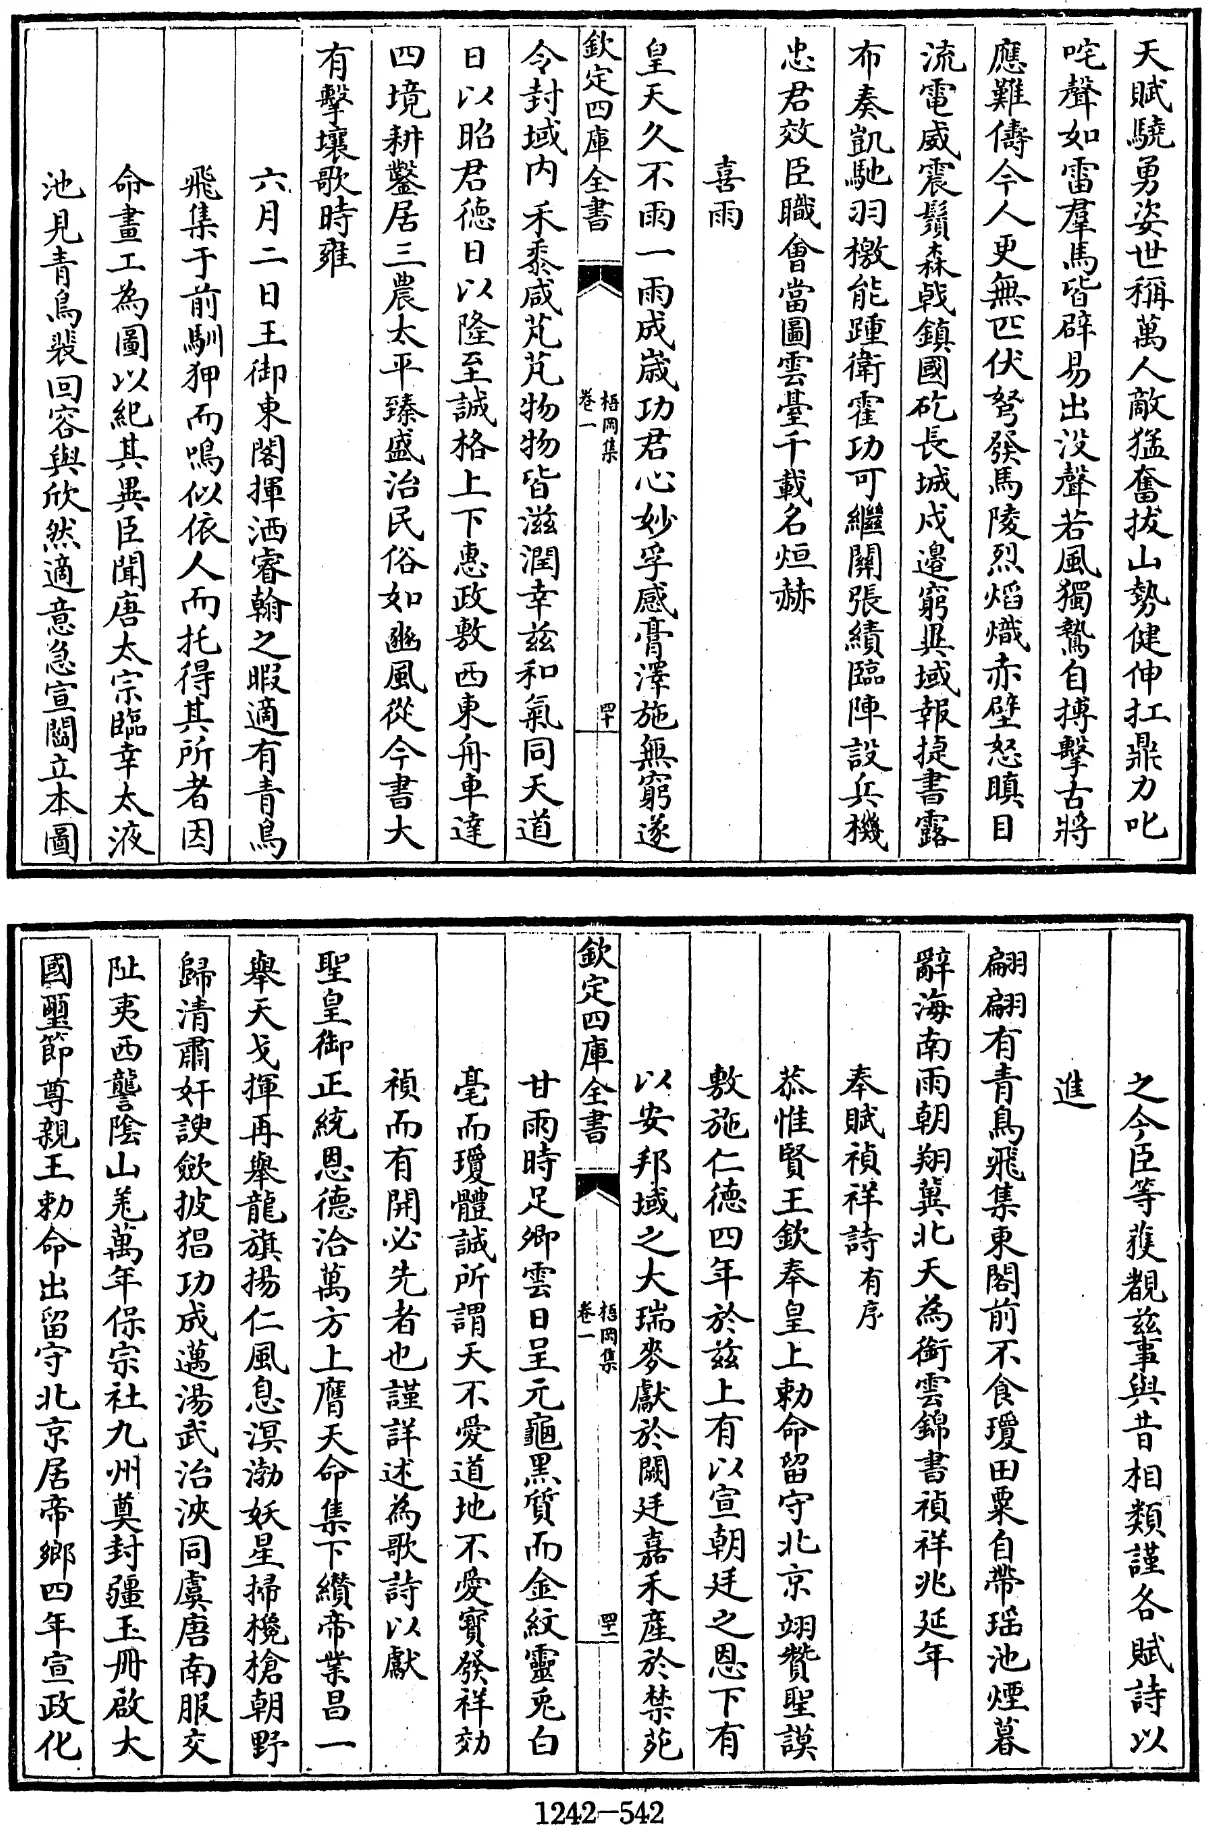 天賦驍勇姿世稱萬人敵猛奮拔山勢健伸扛鼎力叱
咤聲如雷羣馬皆辟易出没聲若風獨鷙自搏擊古將
應難儔今人更無匹伏弩發馬陵烈熖熾赤壁怒瞋目
流電威震鬚森戟鎮國矻長城戍邊窮異域報捷書露
布奏凱馳羽檄能踵衛霍功可繼關張績臨陣設兵機
忠君效臣職會當圖雲臺千載名烜赫
喜雨
皇天久不雨一雨成歳功君心妙孚感膏澤施無窮遂
欽定四庫全書
梧岡集
卷一
四十
令封域内禾黍咸芃芃物物皆滋潤幸兹和氣同天道
日以昭君德日以隆至誠格上下惠政敷西東舟車達
四境耕鑿居三農太平臻盛治民俗如豳風從今書大
有擊壤歌時雍
六月二日王御東閣揮洒睿翰之暇適有青鳥
飛集于前馴狎而鳴似依人而托得其所者因
命畫工為圖以紀其異臣聞唐太宗臨幸太液
池見青鳥裴回容與欣然適意急宣閻立本圖
之今臣等獲覩兹事與昔相類謹各賦詩以
進
翩翩有青鳥飛集東閣前不食瓊田粟自帶瑶池煙暮
辭海南雨朝翔冀北天為銜雲錦書禎祥兆延年
奉賦禎祥詩有序
恭惟賢王欽奉皇上勅命留守北京翊贊聖謨
敷施仁德四年於兹上有以宣朝廷之恩下有
以安邦域之大瑞麥獻於闕廷嘉禾産於禁苑
欽定四庫全書
梧岡集
卷一
四十一
甘雨時足卿雲日呈元龜黒質而金紋靈兎白
毫而瓊體誠所謂天不愛道地不愛寳發祥効
禎而有開必先者也謹詳述為歌詩以獻
聖皇御正統恩德洽萬方上膺天命集下纉帝業昌一
舉天戈揮再舉龍旗揚仁風息溟渤妖星掃欃槍朝野
歸清肅奸諛歛披猖功成邁湯武治浹同虞唐南服交
阯夷西讋陰山羌萬年保宗社九州奠封疆玉冊啟大
國璽節尊親王勅命出留守北京居帝鄉四年宣政化
1242-542